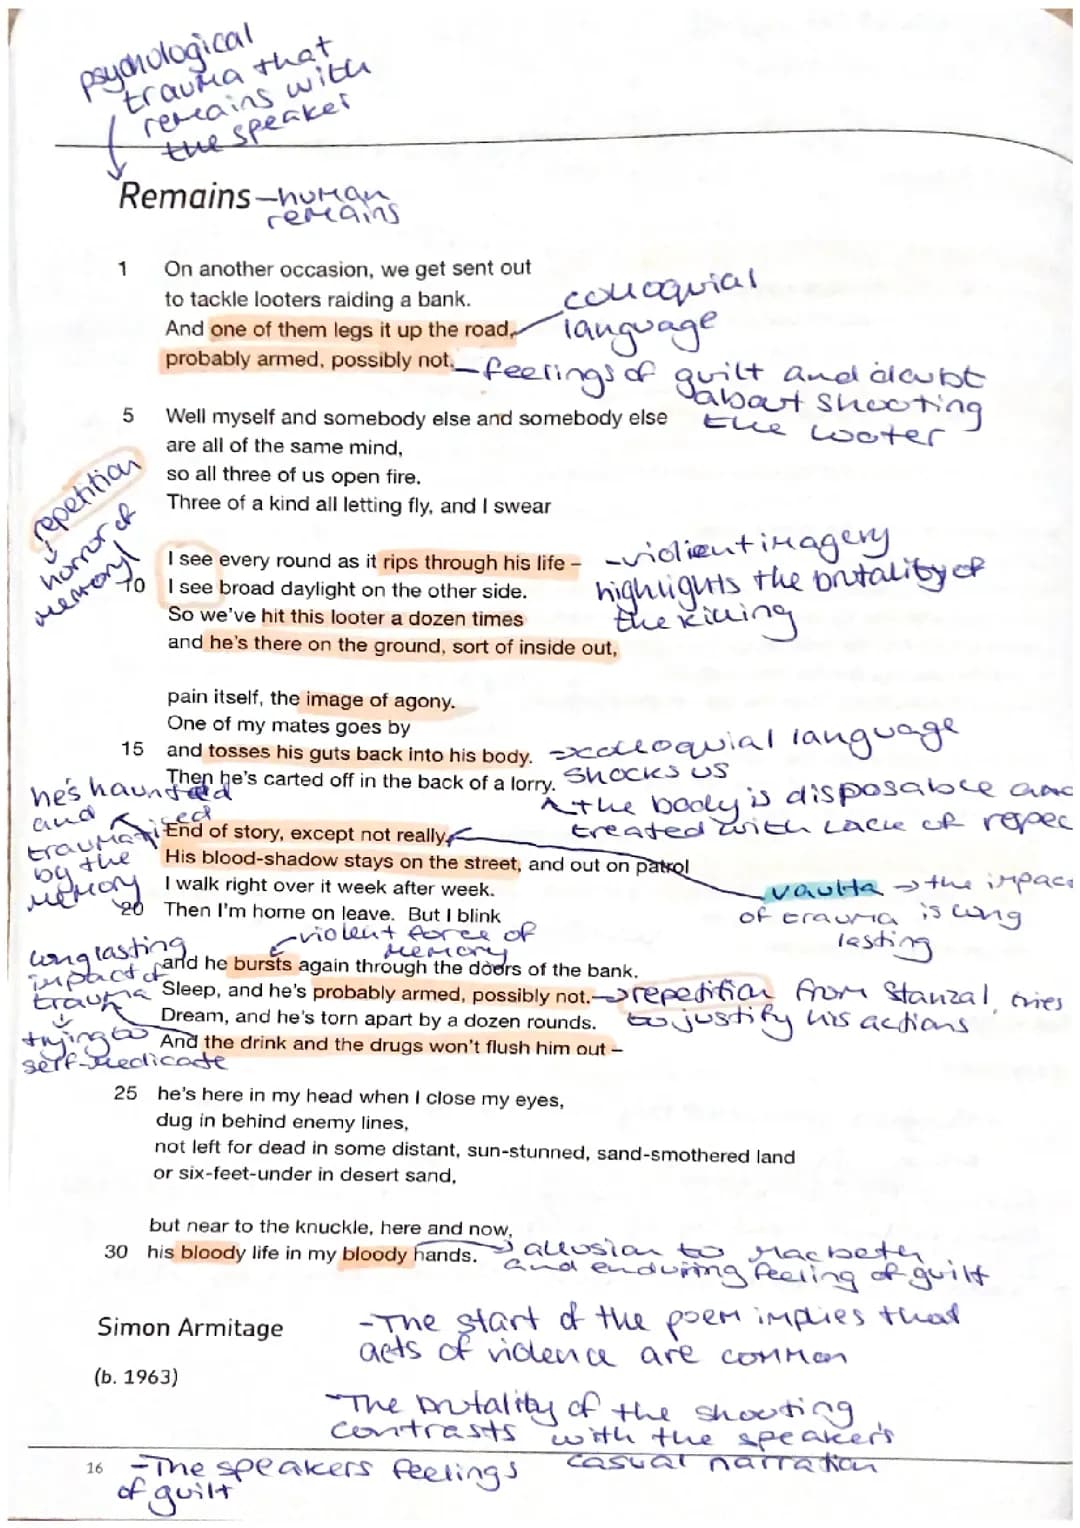 psychological
trauma that
remains with
the speaker
Remains -human
remains
1 On another occasion, we get sent out
to tackle looters raiding a bank.
colloquial
And one of them legs it up the road,
language
probably armed, possibly not. -feelings of guilt and doubt
about shooting
5 Well myself and somebody else and somebody else
the looter
are all of the same mind,
so all three of us open fire.
Three of a kind all letting fly, and I swear
repetition
horror of
memory
I see every round as it rips through his life –
-violient imagery
10 I see broad daylight on the other side.
highlights the brutality of
So we've hit this looter a dozen times
the killing
and he's there on the ground, sort of inside out,
pain itself, the image of agony.
One of my mates goes by
15 and tosses his guts back into his body.
colloquial language
shocks us
Then he's carted off in the back of a lorry.
the body is disposable and
treated with lack of respec
he's haunted
and
traumatised
by the
memory
End of story, except not really,
His blood-shadow stays on the street, and out on patrol
I walk right over it week after week.
volta → the impact
of trauma is long
lasting
20 Then I'm home on leave. But I blink
violent force of
memory
long lasting
impact of
trauma
trying to
self-medicate
and he bursts again through the doors of the bank.
Sleep, and he's probably armed, possibly not. → repetition from stanza 1, tries
to justify his actions
Dream, and he's torn apart by a dozen rounds.
And the drink and the drugs won't flush him out –
25 he's here in my head when I close my eyes,
dug in behind enemy lines,
not left for dead in some distant, sun-stunned, sand-smothered land
or six-feet-under in desert sand,
but near to the knuckle, here and now,
30 his bloody life in my bloody hands.
allusion to Macbeth
and enduring feeling of guilt
Simon Armitage
(b. 1963)
-The start of the poem implies that
acts of violence are common
-The brutality of the shooting
contrasts with the speaker's
casual narration
16
-The speakers feelings
of guilt